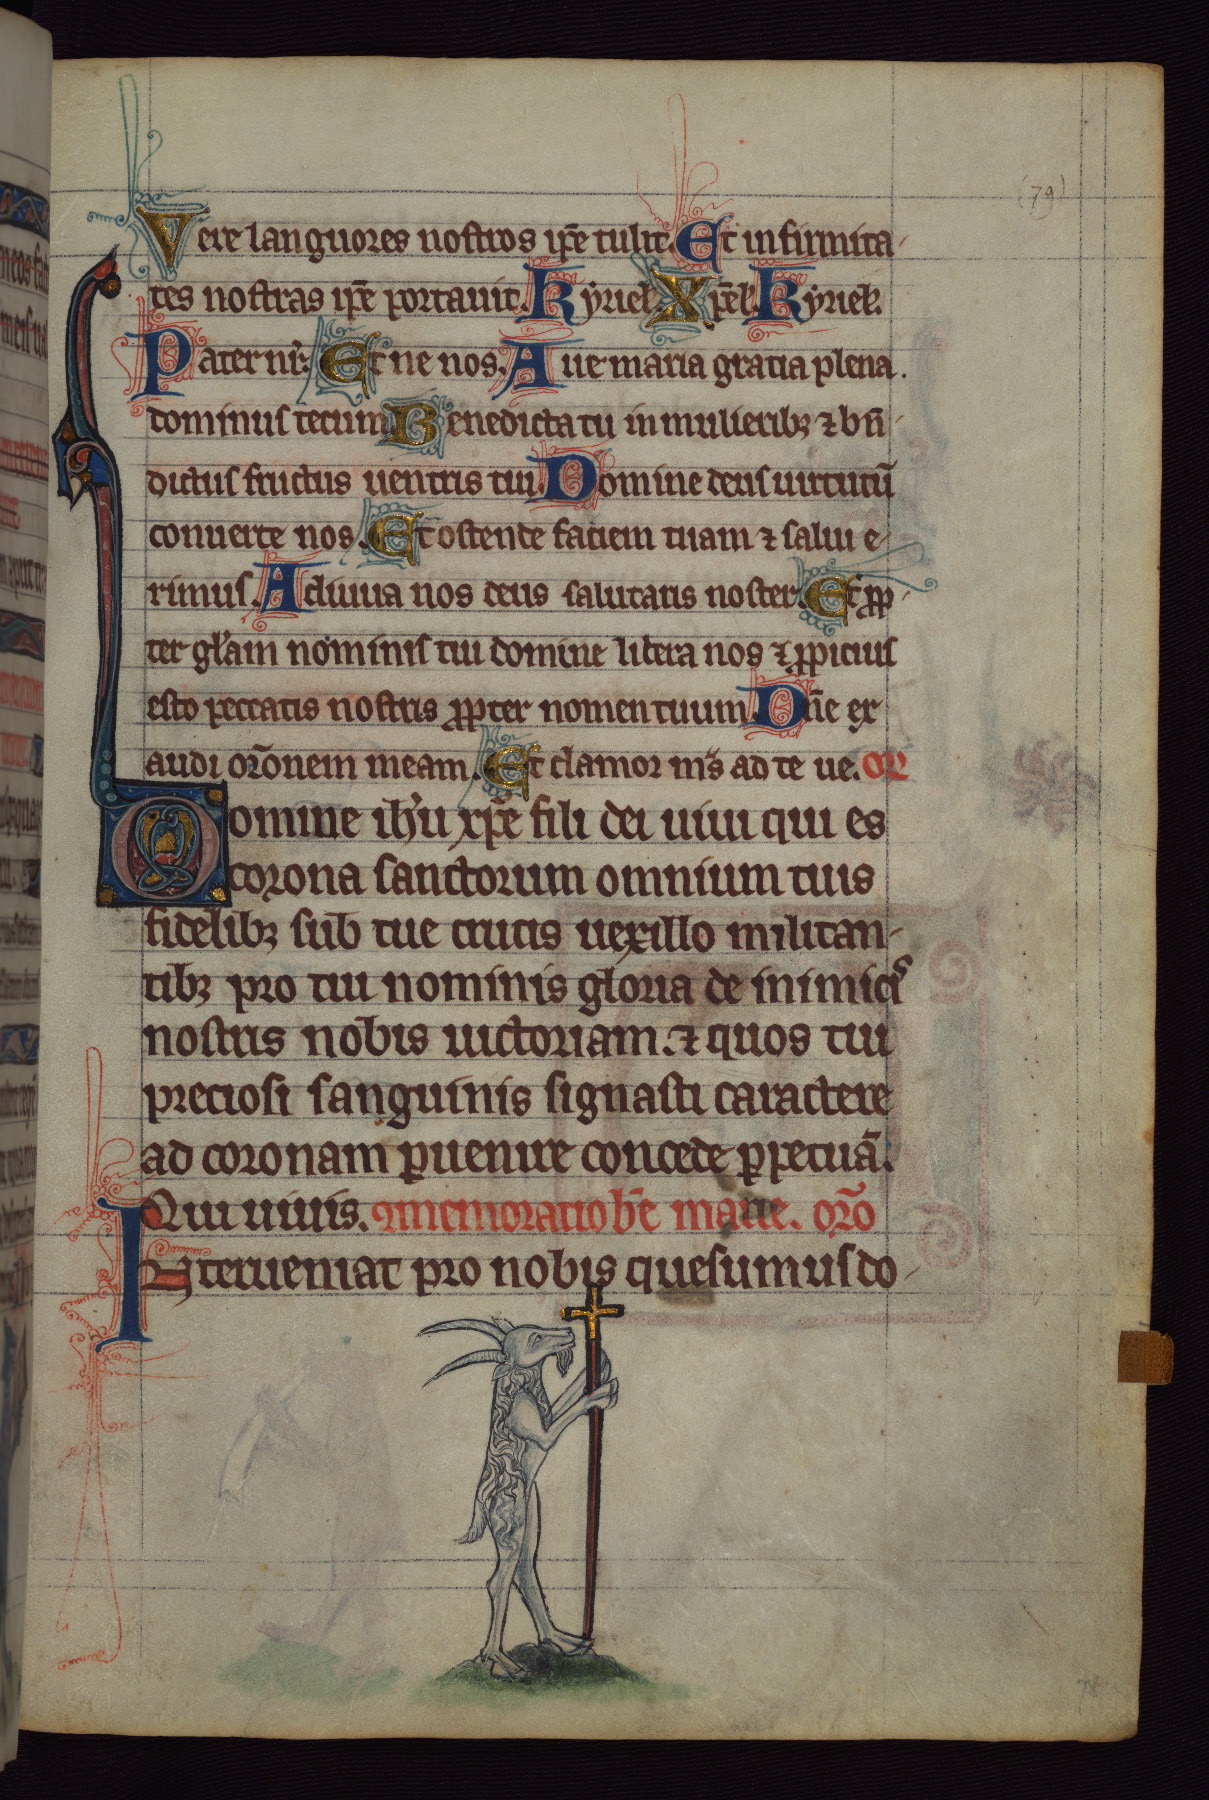 (79)
Vere languores nostros ip̄e tulit. Et infirmita-
tes nostras ip̄e portauit. Kyriel̄. Xp̄el̄. Kyriel̄.
Pater nr̄. Et ne nos. Aue maria gratia plena.
dominus tecum Benedicta tu in mulierib; ⁊ bn̄-
dictus fructus uentris tui. Domine deus uirtutū
conuerte nos. Et ostende faciem tuam ⁊ salui e-
rimus. Adiuua nos deus salutaris noster. Et ꝓp-
ter gl̄am nominis tui domine libera nos ⁊ ꝓpicius
esto peccatis nostris ꝓpter nomen tuum. Dn̄e ex
audi orōnem meam. Et clamor ms̄ ad te ue. or
Domine ih̄u xp̄e fili dei uiui qui es
corona sanctorum omnium tuis
fidelib; sub tue crucis uexillo militan-
tib; pro tui nominis gloria de inimicis
nostris nobis uictoriam. ⁊ quos tui
preciosi sanguinis signasti caractere
ad coronam ꝑuenire concede ꝑpetuā.
Qui uiuis. ꝯmemoratio bē marie. orō
Interueniat pro nobis quesumus do-
78